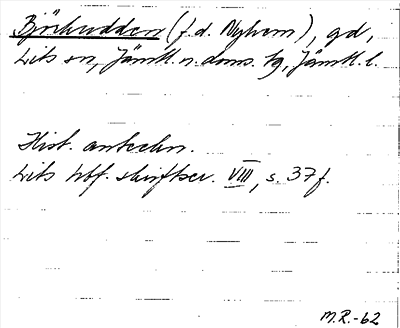 Björkudden (f.d. Nyhem), gd,
Lits sn, Jämtl. n. doms. tg, Jämtl. l.
Hist. anteckn.
Lits hbf. skriftser. VIII, s. 37 f.
M.R.-62